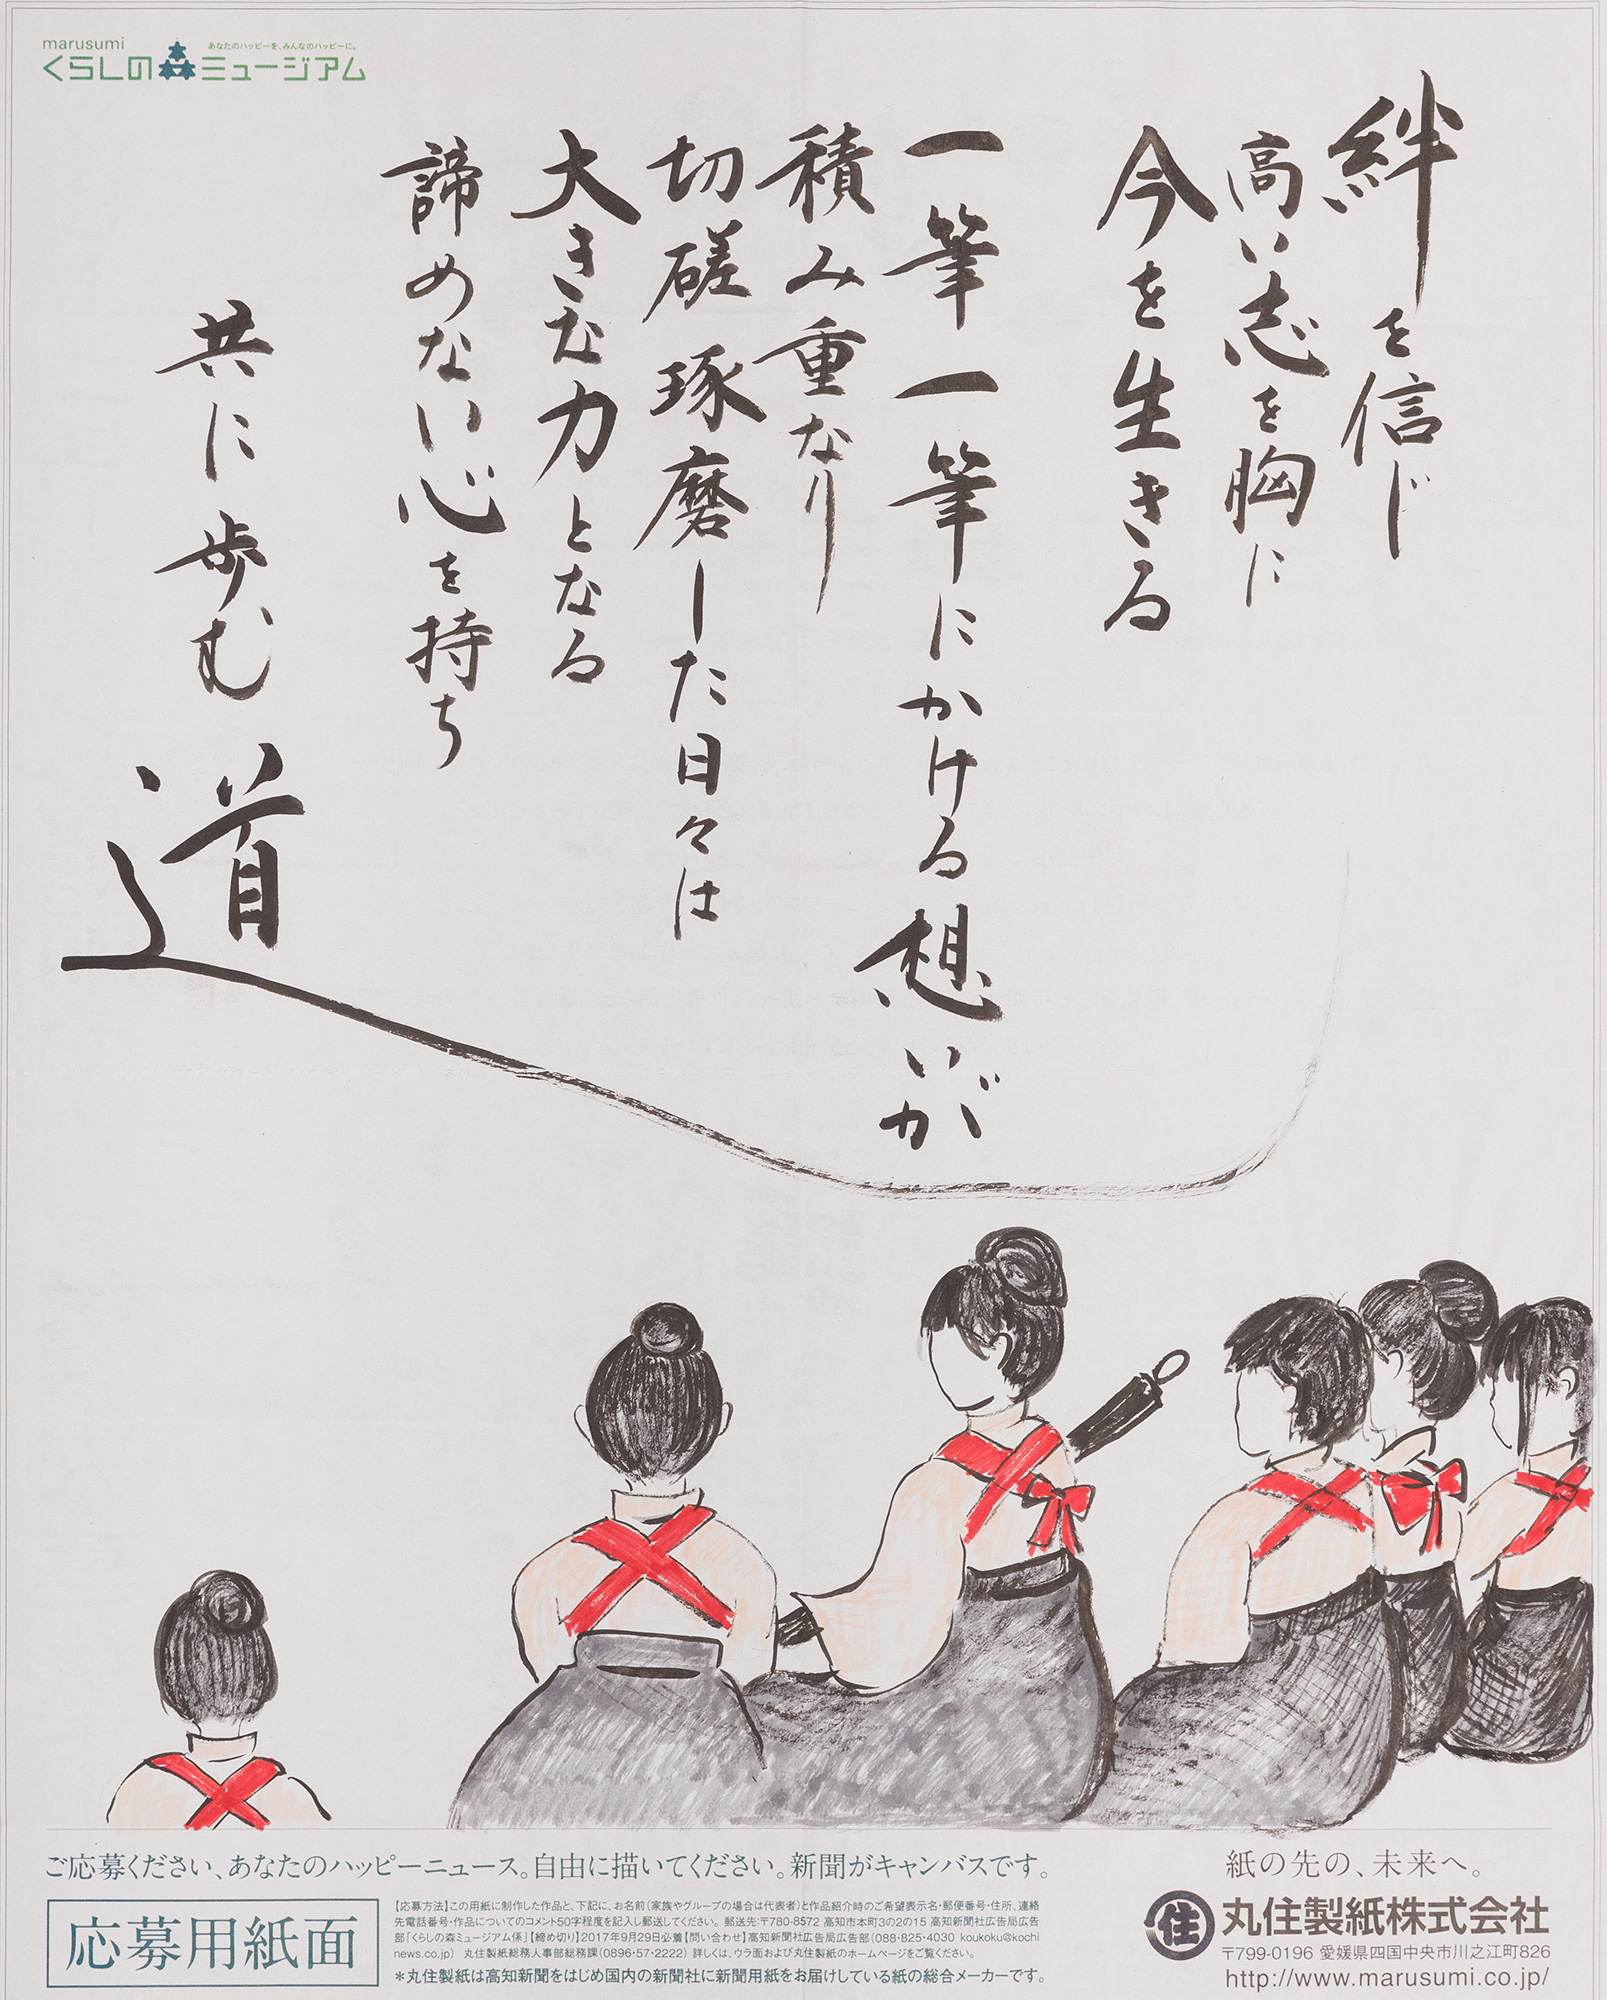 marusumi
あなたのハッピーを、みんなのハッピーに。
くらしの森ミュージアム
絆を信じ
高い志を胸に
今を生きる
一筆一筆にかける想いが
積み重なり
切磋琢磨した日々は
大きな力となる
諦めない心を持ち
共に歩む
道
ご応募ください、あなたのハッピーニュース。自由に描いてください。新聞がキャンバスです。
応募用紙面
【応募方法】この用紙に制作した作品と、下記に、お名前(家族やグループの場合は代表者)と作品紹介時のご希望表示名・郵便番号・住所、連絡
先電話番号・作品についてのコメント50字程度を記入し郵送してください。 郵送先:〒780-8572 高知市本町3の2の15 高知新聞社広告局広告
部「くらしの森ミュージアム係」【締め切り】2017年9月29日必着【問い合わせ】高知新聞社広告局広告部(088・825・4030 koukoku@kochi
news.co.jp) 丸住製紙総務人事部総務課(0896・57・2222) 詳しくは、ウラ面および丸住製紙のホームページをご覧ください。
*丸住製紙は高知新聞をはじめ国内の新聞社に新聞用紙をお届けしている紙の総合メーカーです。
紙の先の、未来へ。
住 丸住製紙株式会社
〒799-0196 愛媛県四国中央市川之江町826
http://www.marusumi.co.jp/